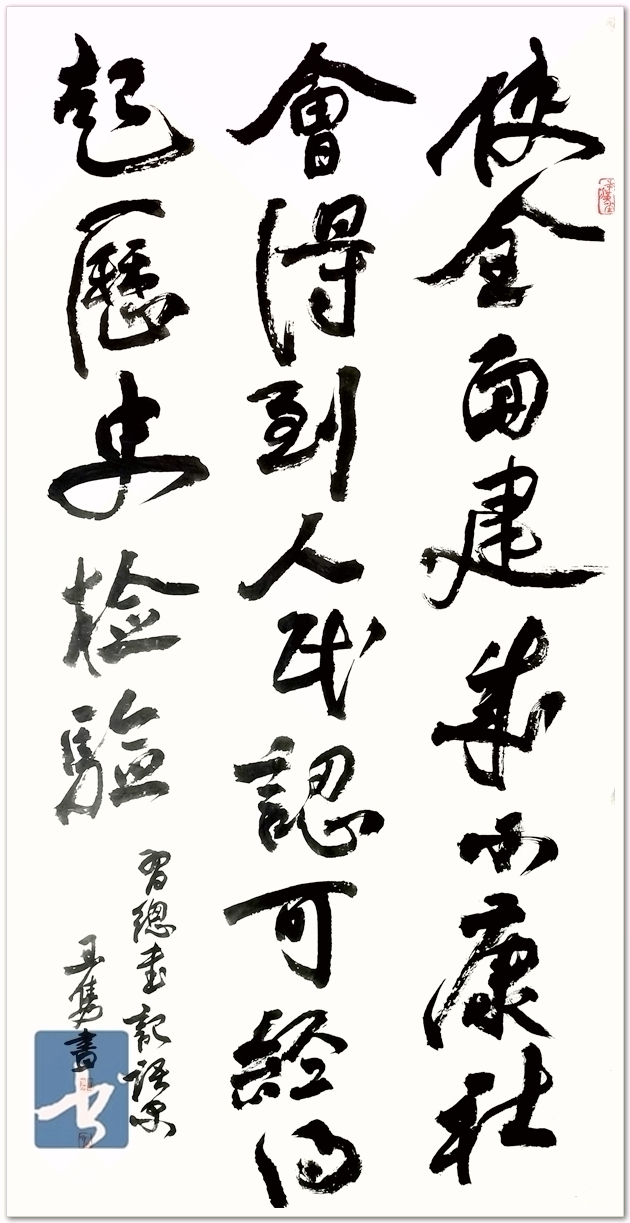 使全面建成小康社
會得到人民認可經得
起歷史檢驗
習總書記語錄
書